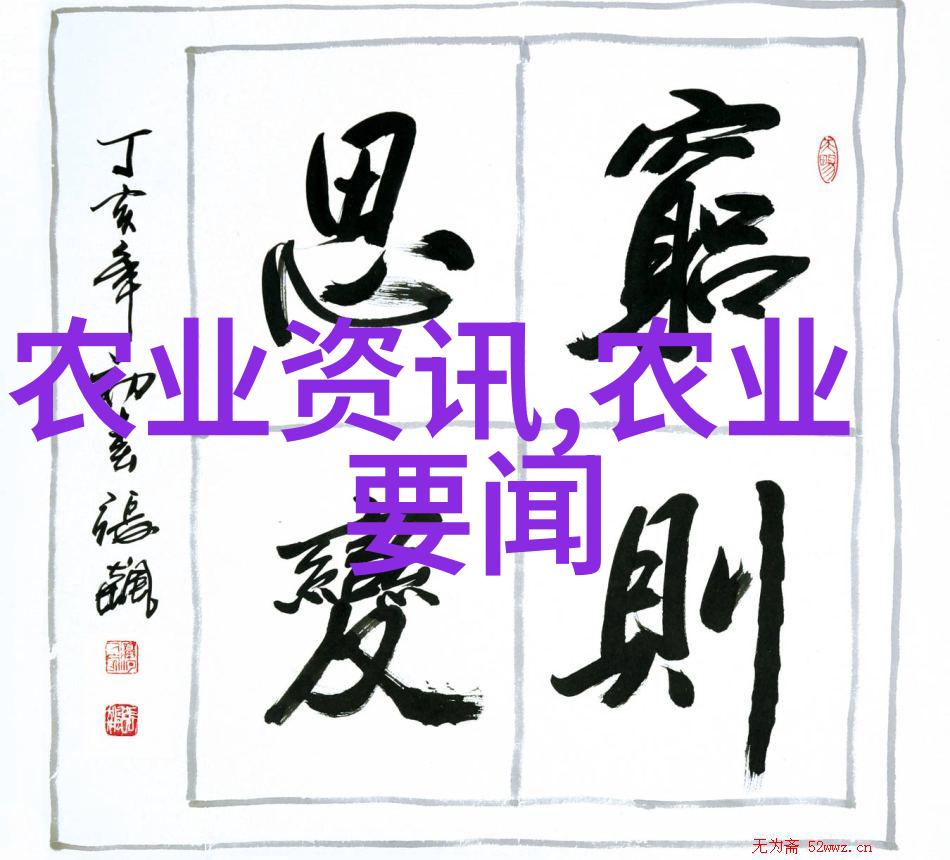 窮則
思變
丁亥年初春張飆
农业资讯,农业
要闻
无为斋 52wwz.cn